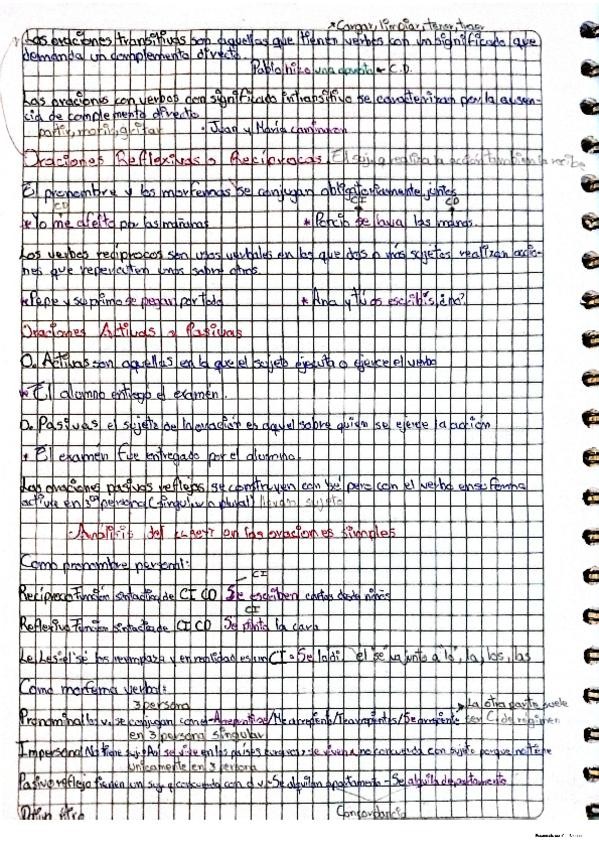 *Cargar, limpiar, tener, traer
Las oraciones transitivas son aquellas que tienen verbos con un significado que
demanda un complemento directo.
Pablo hizo una apuesta ← C.D.
Las oraciones con verbos con significado intransitivo se caracterizan por la ausen-
cia de complemento directo
partir, morir, gritar • Juan y María caminaron
Oraciones Reflexivas o Recíprocas. El suj. realiza la acción también la recibe
El pronombre y los morfemas se conjugan obligatoriamente juntos
CD CI CD
*Yo me afeito por las mañanas *Rocío se lava las manos.
Los verbos recíprocos son usos verbales en los que dos o más sujetos realizan accio-
nes que repercuten unos sobre otros.
*Pepe y su primo se pegan por todo *Ana y tú os escribís, ¿no?
Oraciones Activas y Pasivas
O. Activas son aquellas en la que el sujeto ejecuta o ejerce el verbo
* El alumno entregó el exámen.
O. Pasivas el sujeto de la oración es aquel sobre quien se ejerce la acción
* El exámen fue entregado por el alumno.
Las oraciones pasivas reflejas se construyen con "se" pero con el verbo en su forma
activa en 3ª persona (singular o plural) llevan sujeto
- Análisis del en las oraciones simples
Como pronombre personal:
CI
Recíproco Función sintáctica de CI CD Se escriben cartas desde niños
CI
Reflexivo Función sintáctica de CI CD Se pinta la cara
Le, les: el se los reemplaza y en realidad es un CI • Se la di el "se" va junto a "lo", la, los, las
Como morfema verbal:
3 persona → La otra parte suele
Pronominal los v. se conjugan con el Arrepentirse/Me arrepiento/Te arrepientes/Se arrepiente ser C. de régimen
en 3 persona singular
Impersonal No tiene suj. Así se vive en los países no concuerda con sujeto porque no tiene
únicamente en 3 persona
Pasivo reflejo tienen un suj. y concuerda con el v. - Se alquilan apartamento - Se alquila departamento
Concordancia